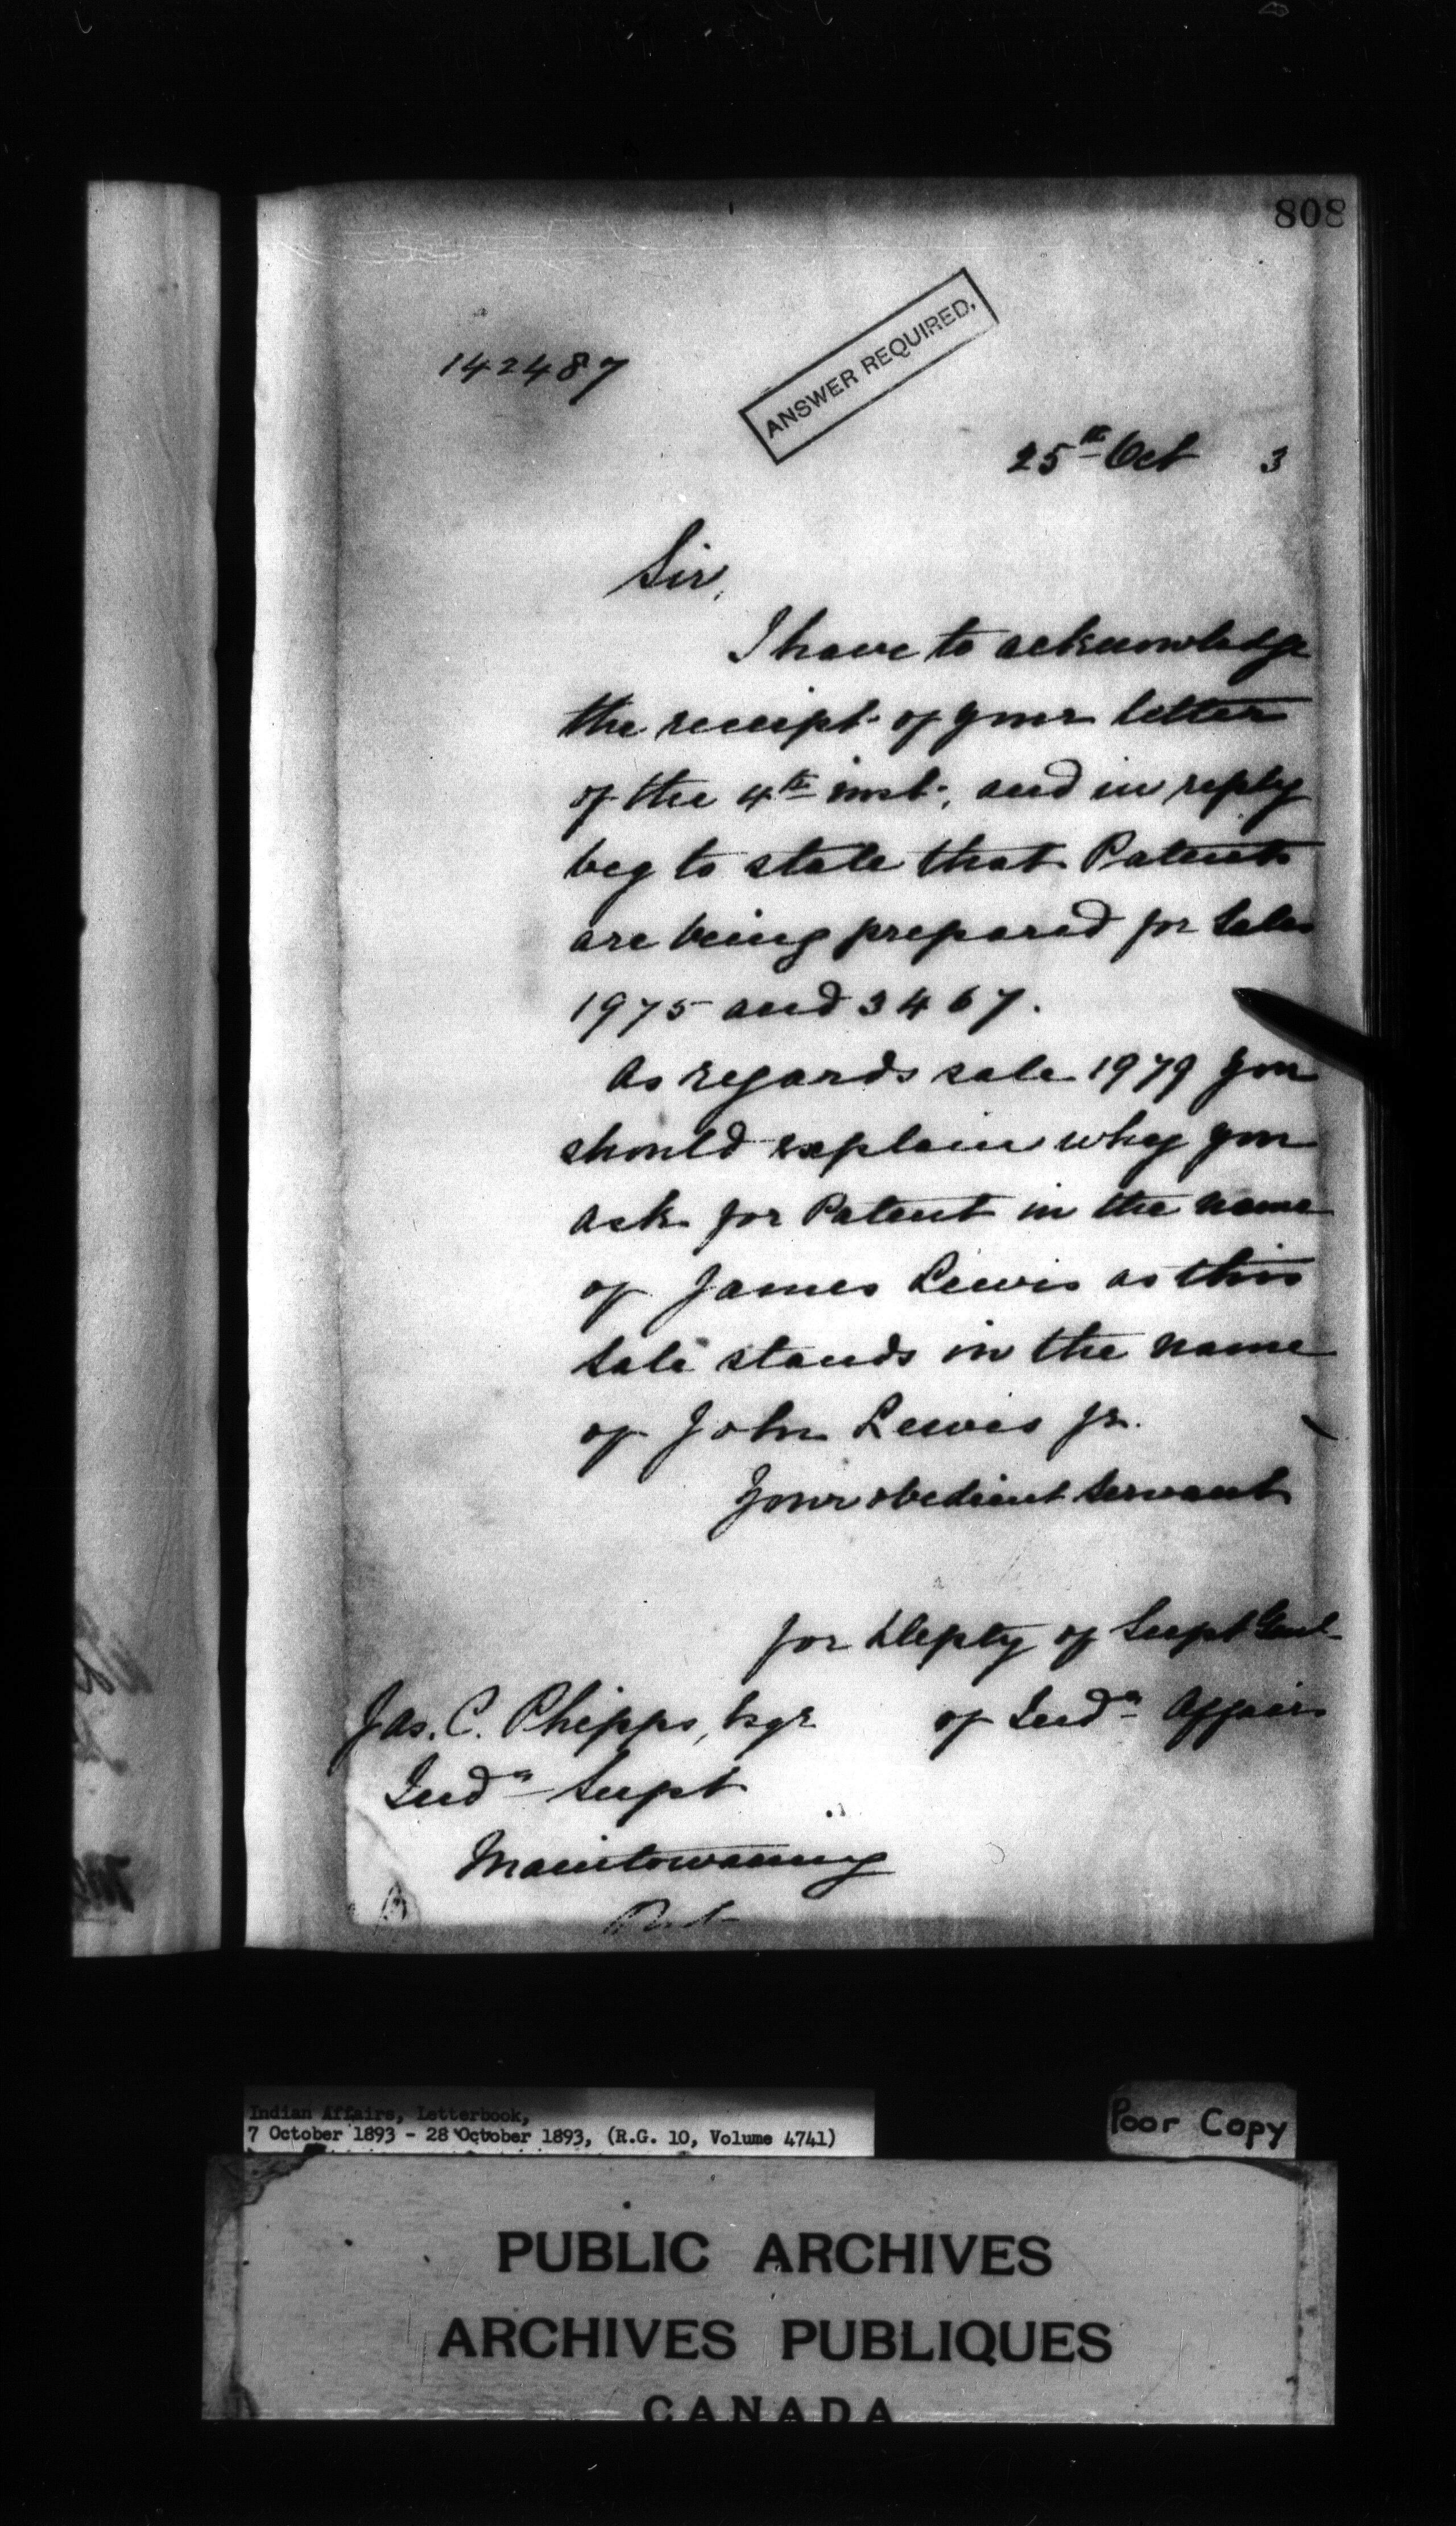 808
142487
ANSWER REQUIRED.
25th Oct 3
Sir,
I have to acknowledge
the receipt of your letter
of the 4th inst., and in reply
beg to state that Patents
are being prepared for Sales
1975 and 3467.
As regards sale 1979 you
should explain why you
ask for Patent in the name
of James Lewis as this
sale stands in the name
of John Lewis Jr.
Your obedient servant
for Depty of Supt Genl
Jas. C. Phipps, Esqr of Indn Affairs
Indn Supt
Manitowaning
Indian Affairs, Letterbook,
7 October 1893 - 28 October 1893, (R.G. 10, Volume 4741)
Poor Copy
PUBLIC ARCHIVES
ARCHIVES PUBLIQUES
CANADA